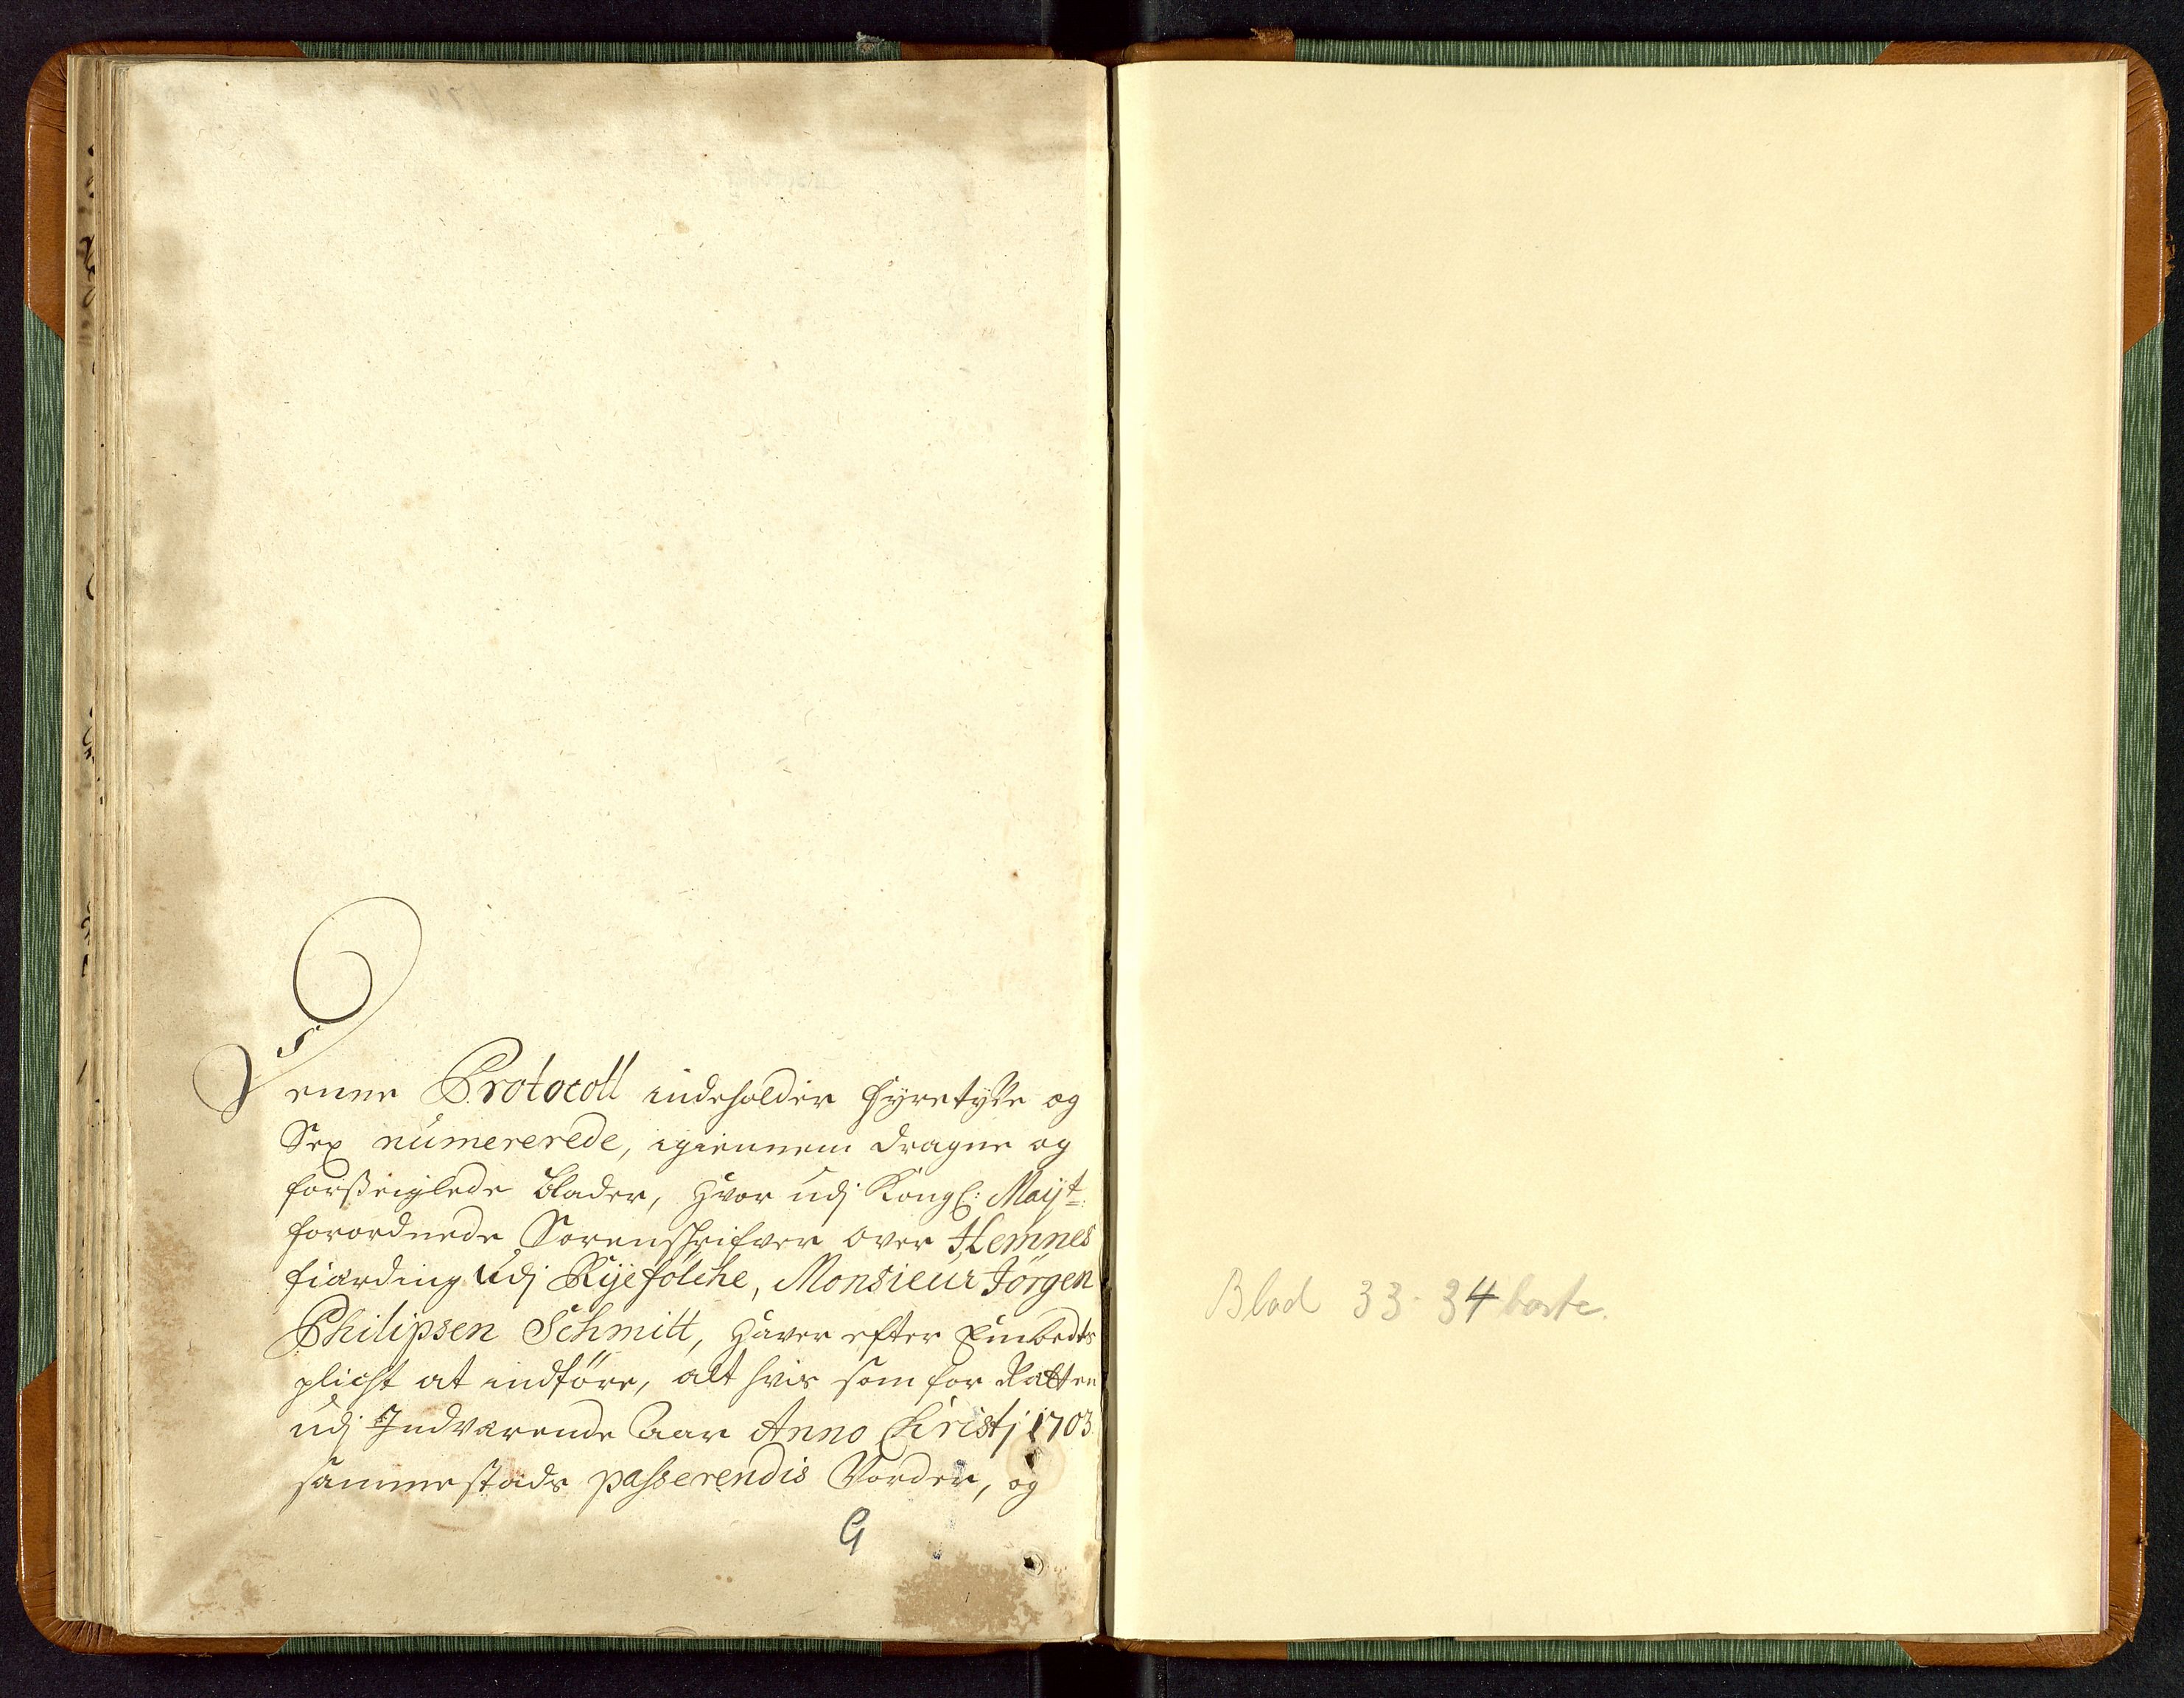 Denne Protocoll indeholder Fyretyffe og
Sex numererede, igiennem dragne og
forseiglede blader, Hvor udj Kongl: Mayt:
forordnede Sorenskrifver over Hemnes
fiærding udj Ryefölche, Monsieur Jörgen
Philipsen Schmitt, Haver efter Embedts
plicht at indföre, alt hvis som for Rætten
udj Indværende Aar Anno Christj 1703
sammestæds passerendis Vorder, og
G
Blad 33-34 borte.